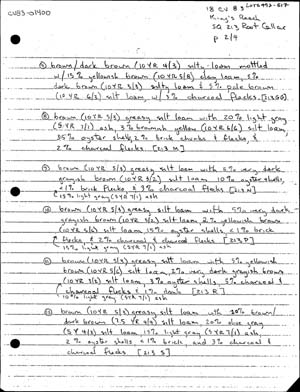 CV83-01400
18 CV 83 Lots 492-517
King's Reach
SQ 213 Root Cellar
p 2/4
brown/dark brown (10YR 4/3) silty loam mottled
w/15% yellowish brown (10YR 5/8) clay loam, 5%
dark brown (10YR 3/3) silty loam & 5% pale brown
(10YR 6/3) silt loam, w/ 3% charcoal flecks. [213GG]
brown (10YR 5/3) greasy silt loam with 20% light gray
(5YR 7/1) ash, 3% brownish yellow (10YR 6/6) silt loam,
35% oyster shell, 2% brick chunks & flecks, &
2% charcoal flecks. [213M]
brown (10YR 5/3) greasy silt loam with 5% very dark
grayish brown (10YR 3/2) silt loam 10% oyster shells,
<1% brick flecks & 3% charcoal flecks [213N]
15% light gray (5YR 7/1) ash
brown (10YR 5/3) greasy silt loam with 5% very dark
grayish brown (10YR 3/2) silt loam 2% yellowish brown
(10YR 5/6) silt loam, 15% oyster shells <1% brick
flecks & 2% charcoal & charcoal flecks [213P]
15% light gray (5YR 7/1) ash
brown (10YR 5/3) greasy silt loam with 3% yellowish
brown (10YR 5/6) silt loam, 2% very dark grayish brown
(10YR 3/2) silt loam, 3% oyster shells, 5% charcoal &
charcoal flecks & 1% [213R]
10% light gray (5YR 7/1) ash
brown (10YR 5/3) greasy silt loam with 20% brown/
dark brown (7.5 YR 4/2) silt loam 20% blue gray
silt loam, 15% light gray (5YR 7/1) ash,
2% oyster shells <1% brick, and 3% charcoal &
charcoal flecks [213 S]